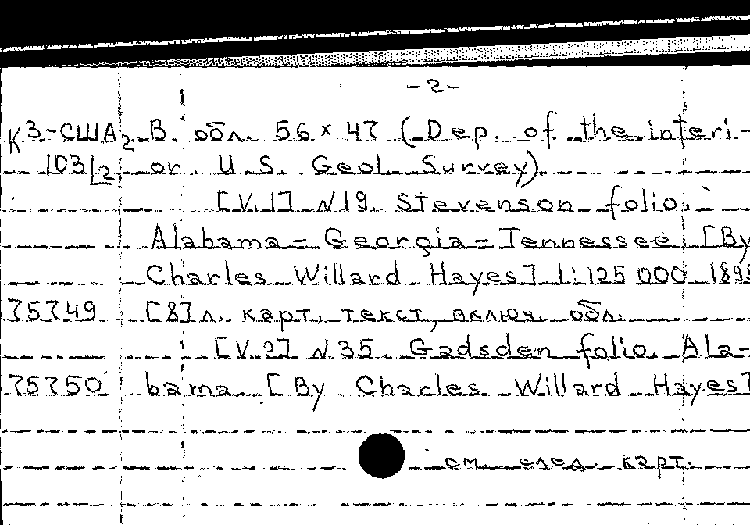 -2-
К3-США2 В. обл. 56×47 (Dep. of the interi-
103/2 or U.S. Geol. Survey).
[V.1] N19. Stevenson folio. -
Alabama - Georgia - Tennessee [By
Charles Willard Hayes] 1:125 000 189
75749 [8] л. карт. текст, включ. обл.
[V.2] N35. Gadsden folio. Ala-
75750 bama. [By Charles Willard Hayes]
см. след. карт.